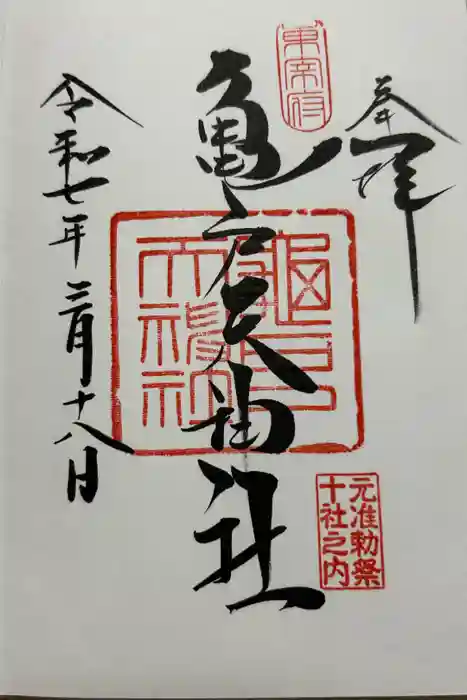 奉拝
東京府
亀戸天神社
亀戸天神社
元准勅祭
十社之内
令和七年三月十八日